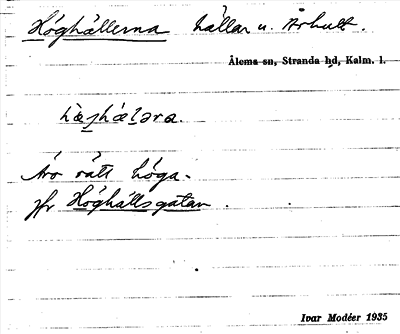 Höghällerna hällar u. Århult.
Ålems sn, Stranda hd, Kalm. l.
hö̀ʒhä́lәra.
Äro rätt höga.
Jfr Höghällsgatan.
Ivar Modéer 1935